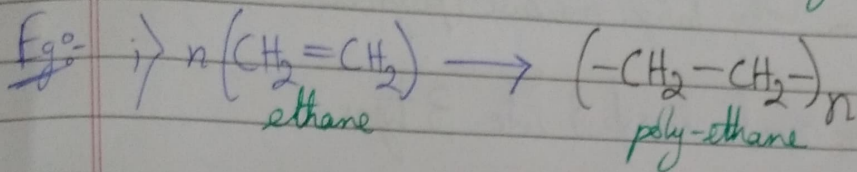 Eg:- i) n(CH₂=CH₂) ⟶ (-CH₂-CH₂-)n
ethane poly-ethane